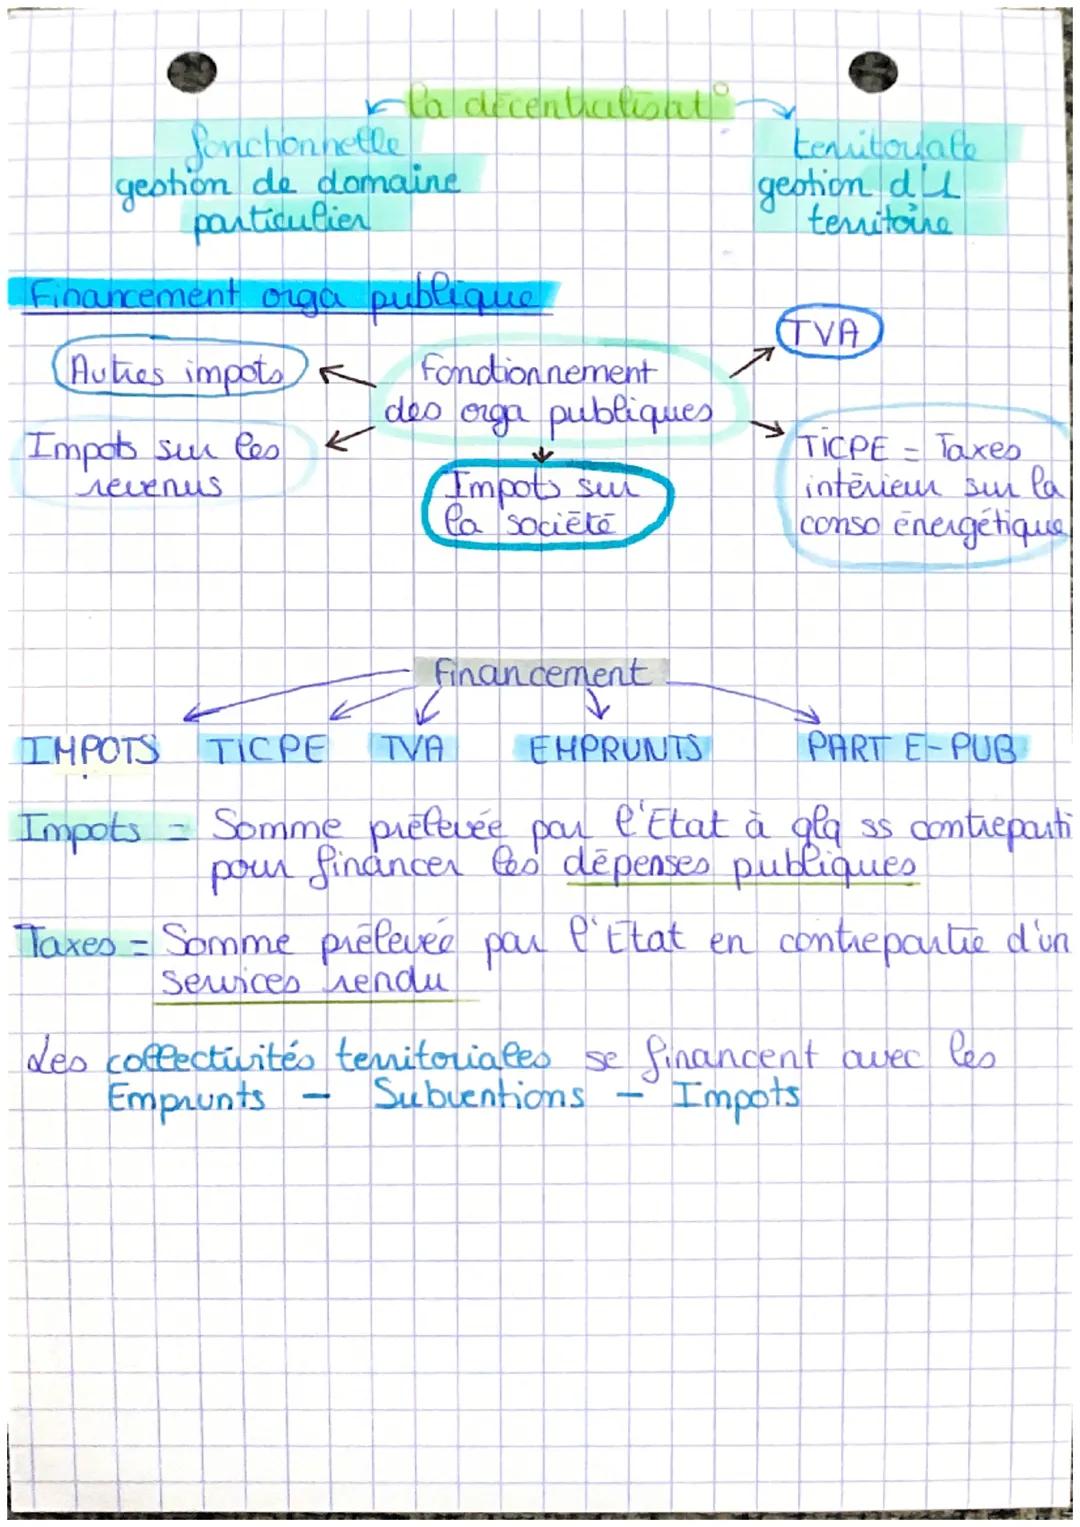 La décentralisat°
fonctionnelle
gestion de domaine
particulier
territoriale
gestion d'1
territoire
Financement orga publique
TVA
Autres impots
Fonctionnement
des orga publiques
Impots sur les
revenus
Impots sur
la société
TICPE = Taxes
intérieur sur la
conso énergétique
Financement
IMPOTS TICPE TVA EMPRUNTS PART E-PUB
Impots = Somme prélevée par l'Etat à qlq ss contreparti
pour financer les dépenses publiques
Taxes = Somme prélevée par l'Etat en contrepartie d'un
services rendu
Les collectivités territoriales se financent avec les
Emprunts - Subventions - Impots